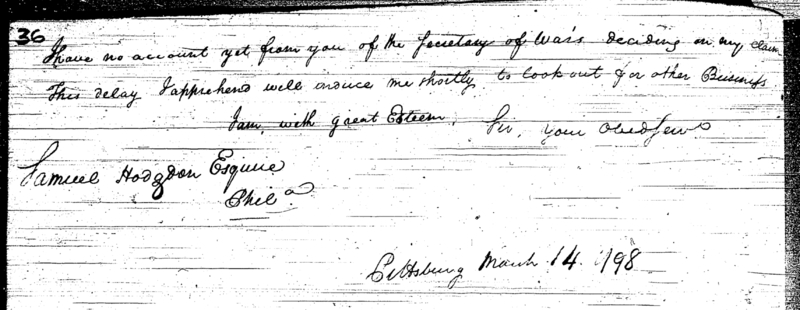 36
I have no account yet from you of the Secretary of War's deciding on my claim
This delay I apprehend will induce me shortly to look out for other Business
I am, with great Esteem, Sir, your Obed Serv
Samuel Hodgdon Esquire
Phila.
Pittsburg March 14 1798